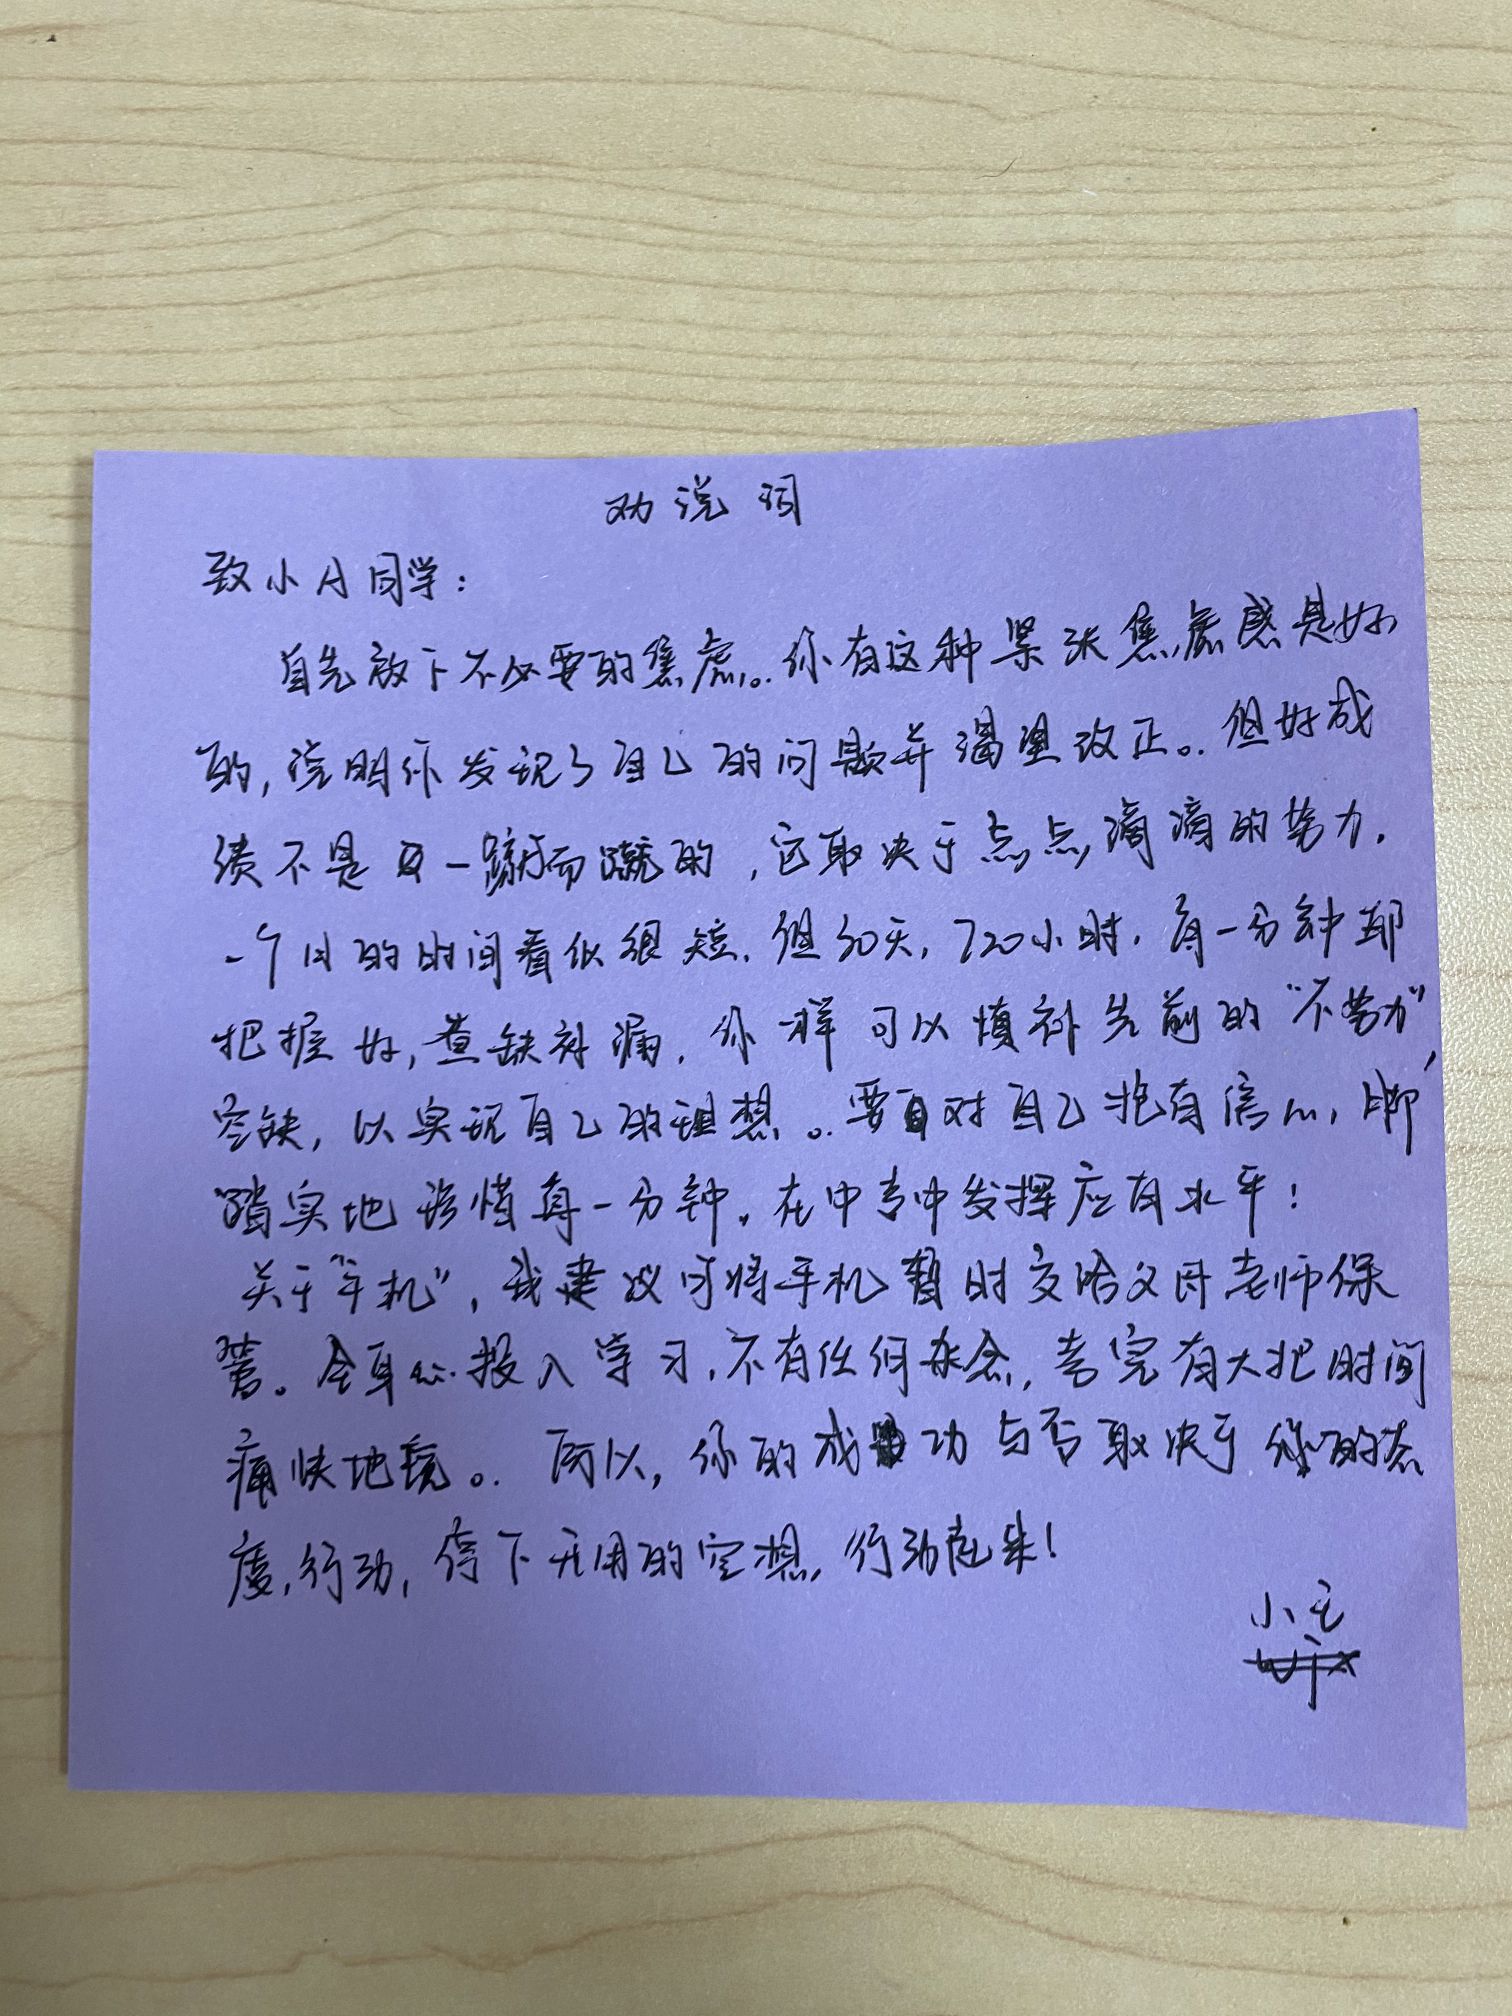 劝说词
致小A同学：
首先放下不必要的焦虑。你有这种紧张焦虑感是好
的，说明你发现了自己的问题并渴望改正。但好成
绩不是一蹴而蹴的，它取决于点点滴滴的努力.
一个月的时间看似很短，但30天，720小时，每一分钟都
把握好，查缺补漏，你一样可以填补先前的“不努力”
空缺，以实现自己的理想。要对自己抱有信心，脚
踏实地珍惜每一分钟，在中考中发挥应有水平！
关于“手机”，我建议可将手机暂时交给父母老师保
管。全身心投入学习，不有任何杂念，考完有大把时间
痛快地玩。所以，你的成功与否取决于你的态
度，行动，停下无用的空想，行动起来！
小王